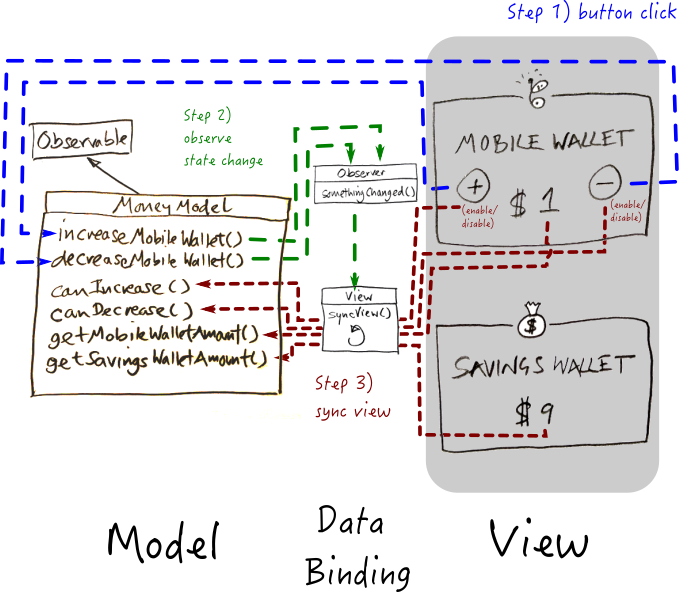 Step 1) button click
Step 2)
observe
state change
Observable
MoneyModel
increaseMobileWallet()
decreaseMobileWallet()
canIncrease()
canDecrease()
getMobileWalletAmount()
getSavingsWalletAmount()
Observer
somethingChanged()
View
syncView()
Step 3)
sync view
MOBILE WALLET
+
$ 1
−
(enable/
disable)
(enable/
disable)
$
SAVINGS WALLET
$ 9
Model
Data
Binding
View